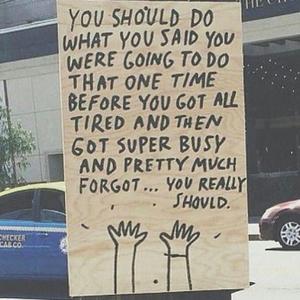 YOU SHOULD DO
WHAT YOU SAID YOU
WERE GOING TO DO
THAT ONE TIME
BEFORE YOU GOT ALL
TIRED AND THEN
GOT SUPER BUSY
AND PRETTY MUCH
FORGOT... YOU REALLY
SHOULD.
CHECKER
CAB CO.